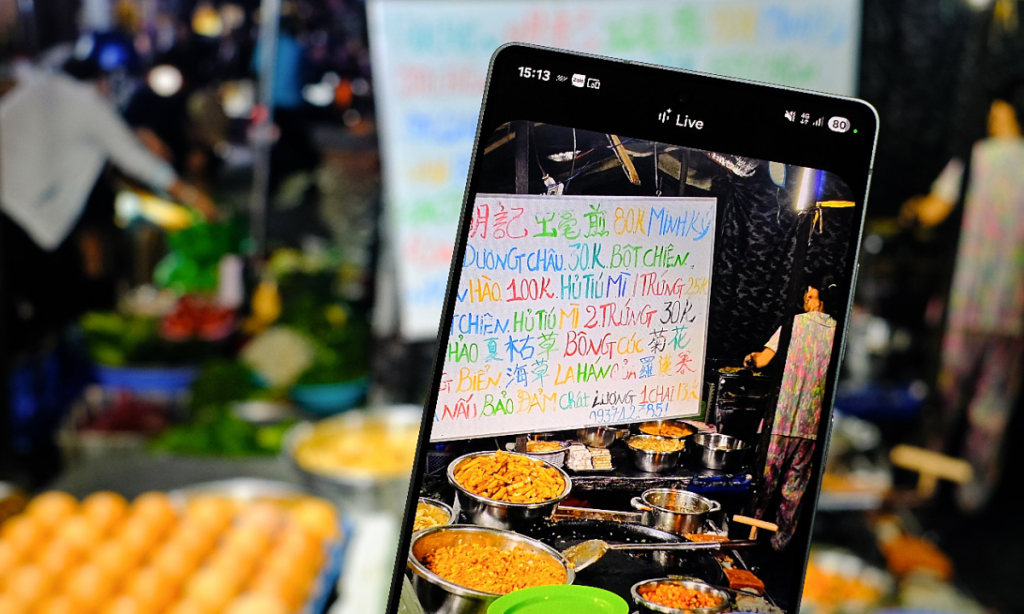 15:13
80
Live
明記 出毫煎 80K MINH KÝ
DƯƠNG CHÂU. 30K. BỘT CHIÊN.
HÀO. 100K. HỦ TIÚ MÌ 1 TRỨNG
CHIÊN HỦ TIÚ MÌ 2. TRỨNG 30K
THẢO 夏枯草 BÔNG CÚC 菊花
BIỂN 海草 LA HÁN
NẤU BẢO ĐẢM CHẤT LƯỢNG 1 CHAI